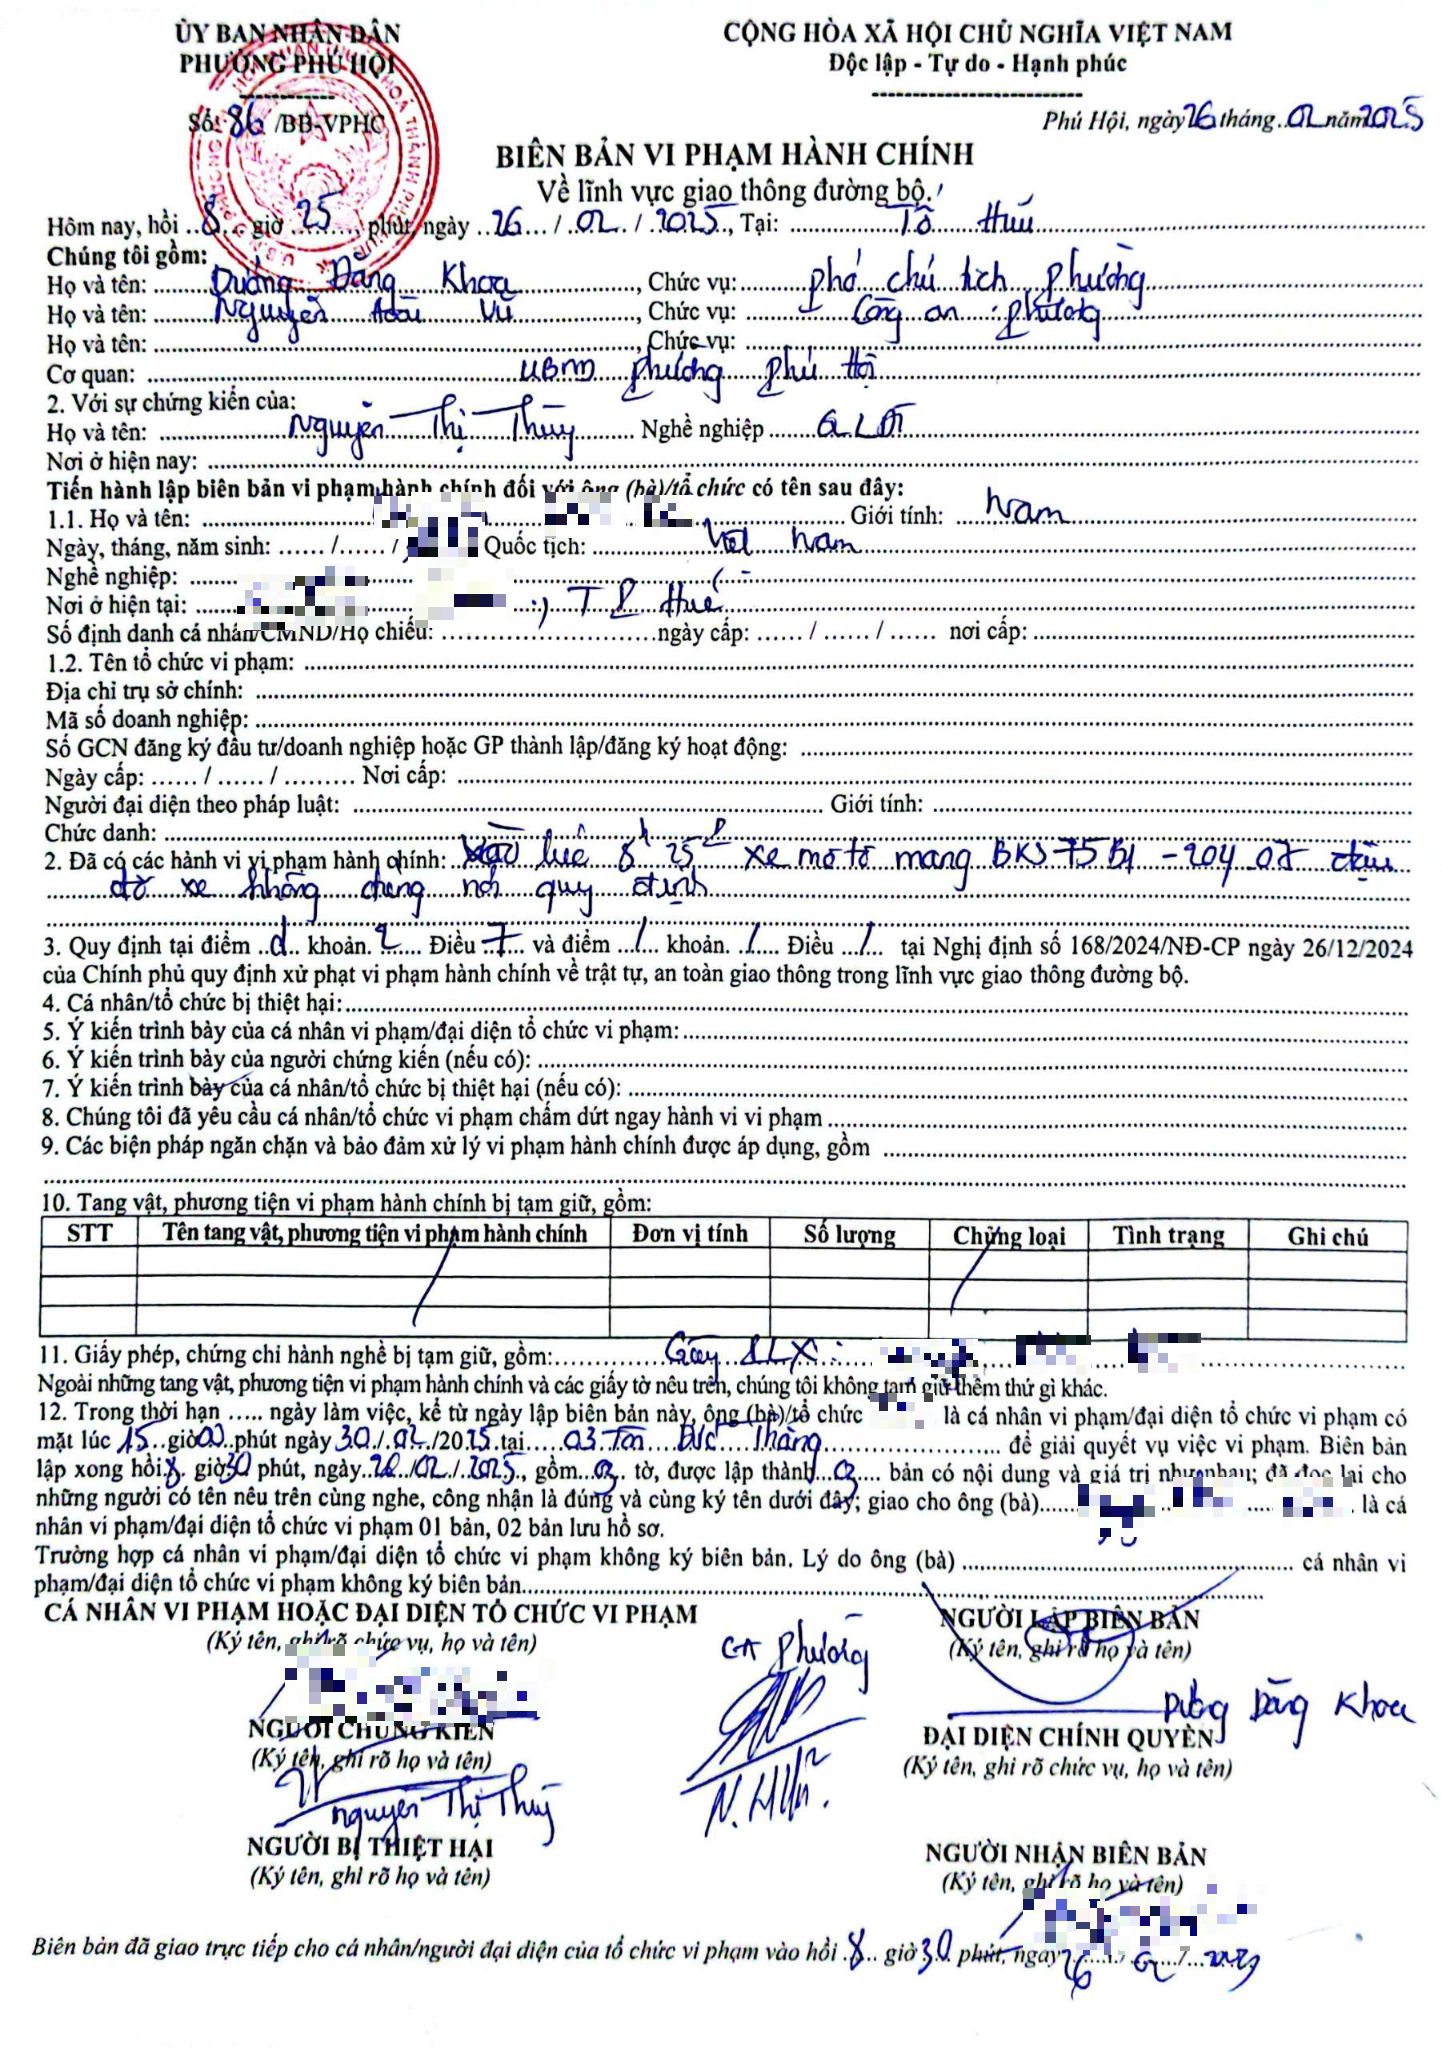 ỦY BAN NHÂN DÂN
PHƯỜNG PHÚ HỘI
CỘNG HÒA XÃ HỘI CHỦ NGHĨA VIỆT NAM
Độc lập - Tự do - Hạnh phúc
Số: 86 /BB-VPHC
Phú Hội, ngày 26 tháng 02 năm 2025
BIÊN BẢN VI PHẠM HÀNH CHÍNH
Về lĩnh vực giao thông đường bộ.
Hôm nay, hồi 8 giờ 25 phút, ngày 26 / 02 / 2025, Tại: Tố Hữu
Chúng tôi gồm:
Họ và tên: Dương Đăng Khoa, Chức vụ: phó chủ tịch phường
Họ và tên: Nguyễn Hoài Vũ, Chức vụ: Công an phường
Họ và tên: , Chức vụ:
Cơ quan: UBND phường Phú Hội
2. Với sự chứng kiến của:
Họ và tên: Nguyễn Thị Thùy Nghề nghiệp
Nơi ở hiện nay:
Tiến hành lập biên bản vi phạm hành chính đối với ông (bà)/tổ chức có tên sau đây:
1.1. Họ và tên: Giới tính: Nam
Ngày, tháng, năm sinh: / / Quốc tịch: Việt Nam
Nghề nghiệp:
Nơi ở hiện tại: , TP Huế
Số định danh cá nhân/CMND/Hộ chiếu: ngày cấp: / / nơi cấp:
1.2. Tên tổ chức vi phạm:
Địa chỉ trụ sở chính:
Mã số doanh nghiệp:
Số GCN đăng ký đầu tư/doanh nghiệp hoặc GP thành lập/đăng ký hoạt động:
Ngày cấp: / / Nơi cấp:
Người đại diện theo pháp luật: Giới tính:
Chức danh:
2. Đã có các hành vi vi phạm hành chính: Vào lúc 8h 25p xe mô tô mang BKS 75B1 - 204.07 đậu
đỗ xe không đúng nơi quy định
3. Quy định tại điểm d khoản 2 Điều 7 và điểm / khoản / Điều / tại Nghị định số 168/2024/NĐ-CP ngày 26/12/2024
của Chính phủ quy định xử phạt vi phạm hành chính về trật tự, an toàn giao thông trong lĩnh vực giao thông đường bộ.
4. Cá nhân/tổ chức bị thiệt hại:
5. Ý kiến trình bày của cá nhân vi phạm/đại diện tổ chức vi phạm:
6. Ý kiến trình bày của người chứng kiến (nếu có):
7. Ý kiến trình bày của cá nhân/tổ chức bị thiệt hại (nếu có):
8. Chúng tôi đã yêu cầu cá nhân/tổ chức vi phạm chấm dứt ngay hành vi vi phạm
9. Các biện pháp ngăn chặn và bảo đảm xử lý vi phạm hành chính được áp dụng, gồm
10. Tang vật, phương tiện vi phạm hành chính bị tạm giữ, gồm:
STT Tên tang vật, phương tiện vi phạm hành chính Đơn vị tính Số lượng Chủng loại Tình trạng Ghi chú
11. Giấy phép, chứng chỉ hành nghề bị tạm giữ, gồm: Giấy
Ngoài những tang vật, phương tiện vi phạm hành chính và các giấy tờ nêu trên, chúng tôi không tạm giữ thêm thứ gì khác.
12. Trong thời hạn ..... ngày làm việc, kể từ ngày lập biên bản này, ông (bà)/tổ chức là cá nhân vi phạm/đại diện tổ chức vi phạm có
mặt lúc 15 giờ 00 phút ngày 30/02/2025 tại 03 Tôn Đức Thắng để giải quyết vụ việc vi phạm. Biên bản
lập xong hồi 8 giờ 30 phút, ngày 26/02/2025, gồm 03 tờ, được lập thành 03 bản có nội dung và giá trị như nhau; đã đọc lại cho
những người có tên nêu trên cùng nghe, công nhận là đúng và cùng ký tên dưới đây; giao cho ông (bà) là cá
nhân vi phạm/đại diện tổ chức vi phạm 01 bản, 02 bản lưu hồ sơ.
Trường hợp cá nhân vi phạm/đại diện tổ chức vi phạm không ký biên bản. Lý do ông (bà) cá nhân vi
phạm/đại diện tổ chức vi phạm không ký biên bản
CÁ NHÂN VI PHẠM HOẶC ĐẠI DIỆN TỔ CHỨC VI PHẠM
(Ký tên, ghi rõ chức vụ, họ và tên)
CA Phường
NGƯỜI LẬP BIÊN BẢN
(Ký tên, ghi rõ họ và tên)
Dương Đăng Khoa
NGƯỜI CHỨNG KIẾN
(Ký tên, ghi rõ họ và tên)
Nguyễn Thị Thùy
ĐẠI DIỆN CHÍNH QUYỀN
(Ký tên, ghi rõ chức vụ, họ và tên)
NGƯỜI BỊ THIỆT HẠI
(Ký tên, ghi rõ họ và tên)
NGƯỜI NHẬN BIÊN BẢN
(Ký tên, ghi rõ họ và tên)
Biên bản đã giao trực tiếp cho cá nhân/người đại diện của tổ chức vi phạm vào hồi 8 giờ 30 phút, ngày 26 / 02 / 2025